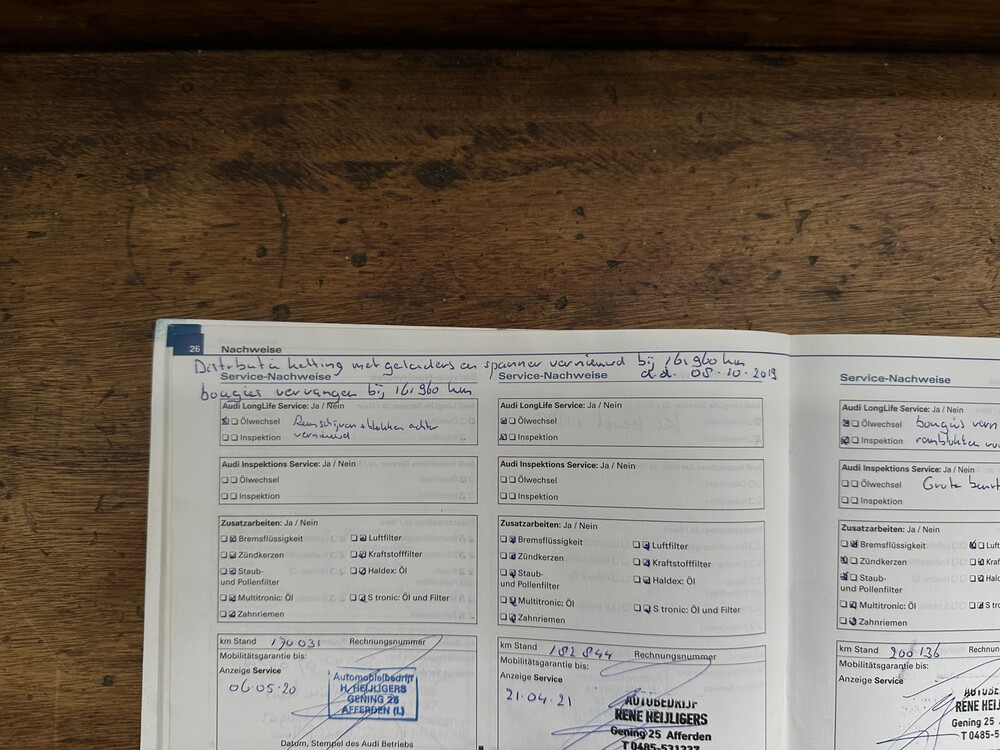 26 Nachweise
Distributie ketting met geleiders en spanner vernieuwd bij 161.960 km
d.d. 08-10-2019
bougies vervangen bij 161.960 km
Service-Nachweise
Audi LongLife Service: Ja / Nein
Ölwechsel Remschijven + blokken achter
Inspektion vernieuwd
Audi Inspektions Service: Ja / Nein
Ölwechsel
Inspektion
Zusatzarbeiten: Ja / Nein
Bremsflüssigkeit Luftfilter
Zündkerzen Kraftstofffilter
Staub- Haldex: Öl
und Pollenfilter
Multitronic: Öl S tronic: Öl und Filter
Zahnriemen
km Stand 170031 Rechnungsnummer
Mobilitätsgarantie bis:
Anzeige Service
06-05-20
Automobielbedrijf
H. HEIJLIGERS
GENING 25
AFFERDEN (L)
Datum, Stempel des Audi Betriebs
Service-Nachweise
Audi LongLife Service: Ja / Nein
Ölwechsel
Inspektion
Audi Inspektions Service: Ja / Nein
Ölwechsel
Inspektion
Zusatzarbeiten: Ja / Nein
Bremsflüssigkeit Luftfilter
Zündkerzen Kraftstofffilter
Staub- Haldex: Öl
und Pollenfilter
Multitronic: Öl S tronic: Öl und Filter
Zahnriemen
km Stand 182844 Rechnungsnummer
Mobilitätsgarantie bis:
Anzeige Service
21-04-21
AUTOBEDRIJF
RENE HEIJLIGERS
Gening 25 Afferden
T 0485-531237
Service-Nachweise
Audi LongLife Service: Ja / Nein
Ölwechsel bougies vern
Inspektion remblokken
Audi Inspektions Service: Ja / Nein
Ölwechsel Grote beurt
Inspektion
Zusatzarbeiten: Ja / Nein
Bremsflüssigkeit Luft
Zündkerzen Kraf
Staub- Hald
und Pollenfilter
Multitronic: Öl S tro
Zahnriemen
km Stand 200136 Rechnun
Mobilitätsgarantie bis:
Anzeige Service
AUTOBE
RENE HEI
Gening 25
T 0485-5